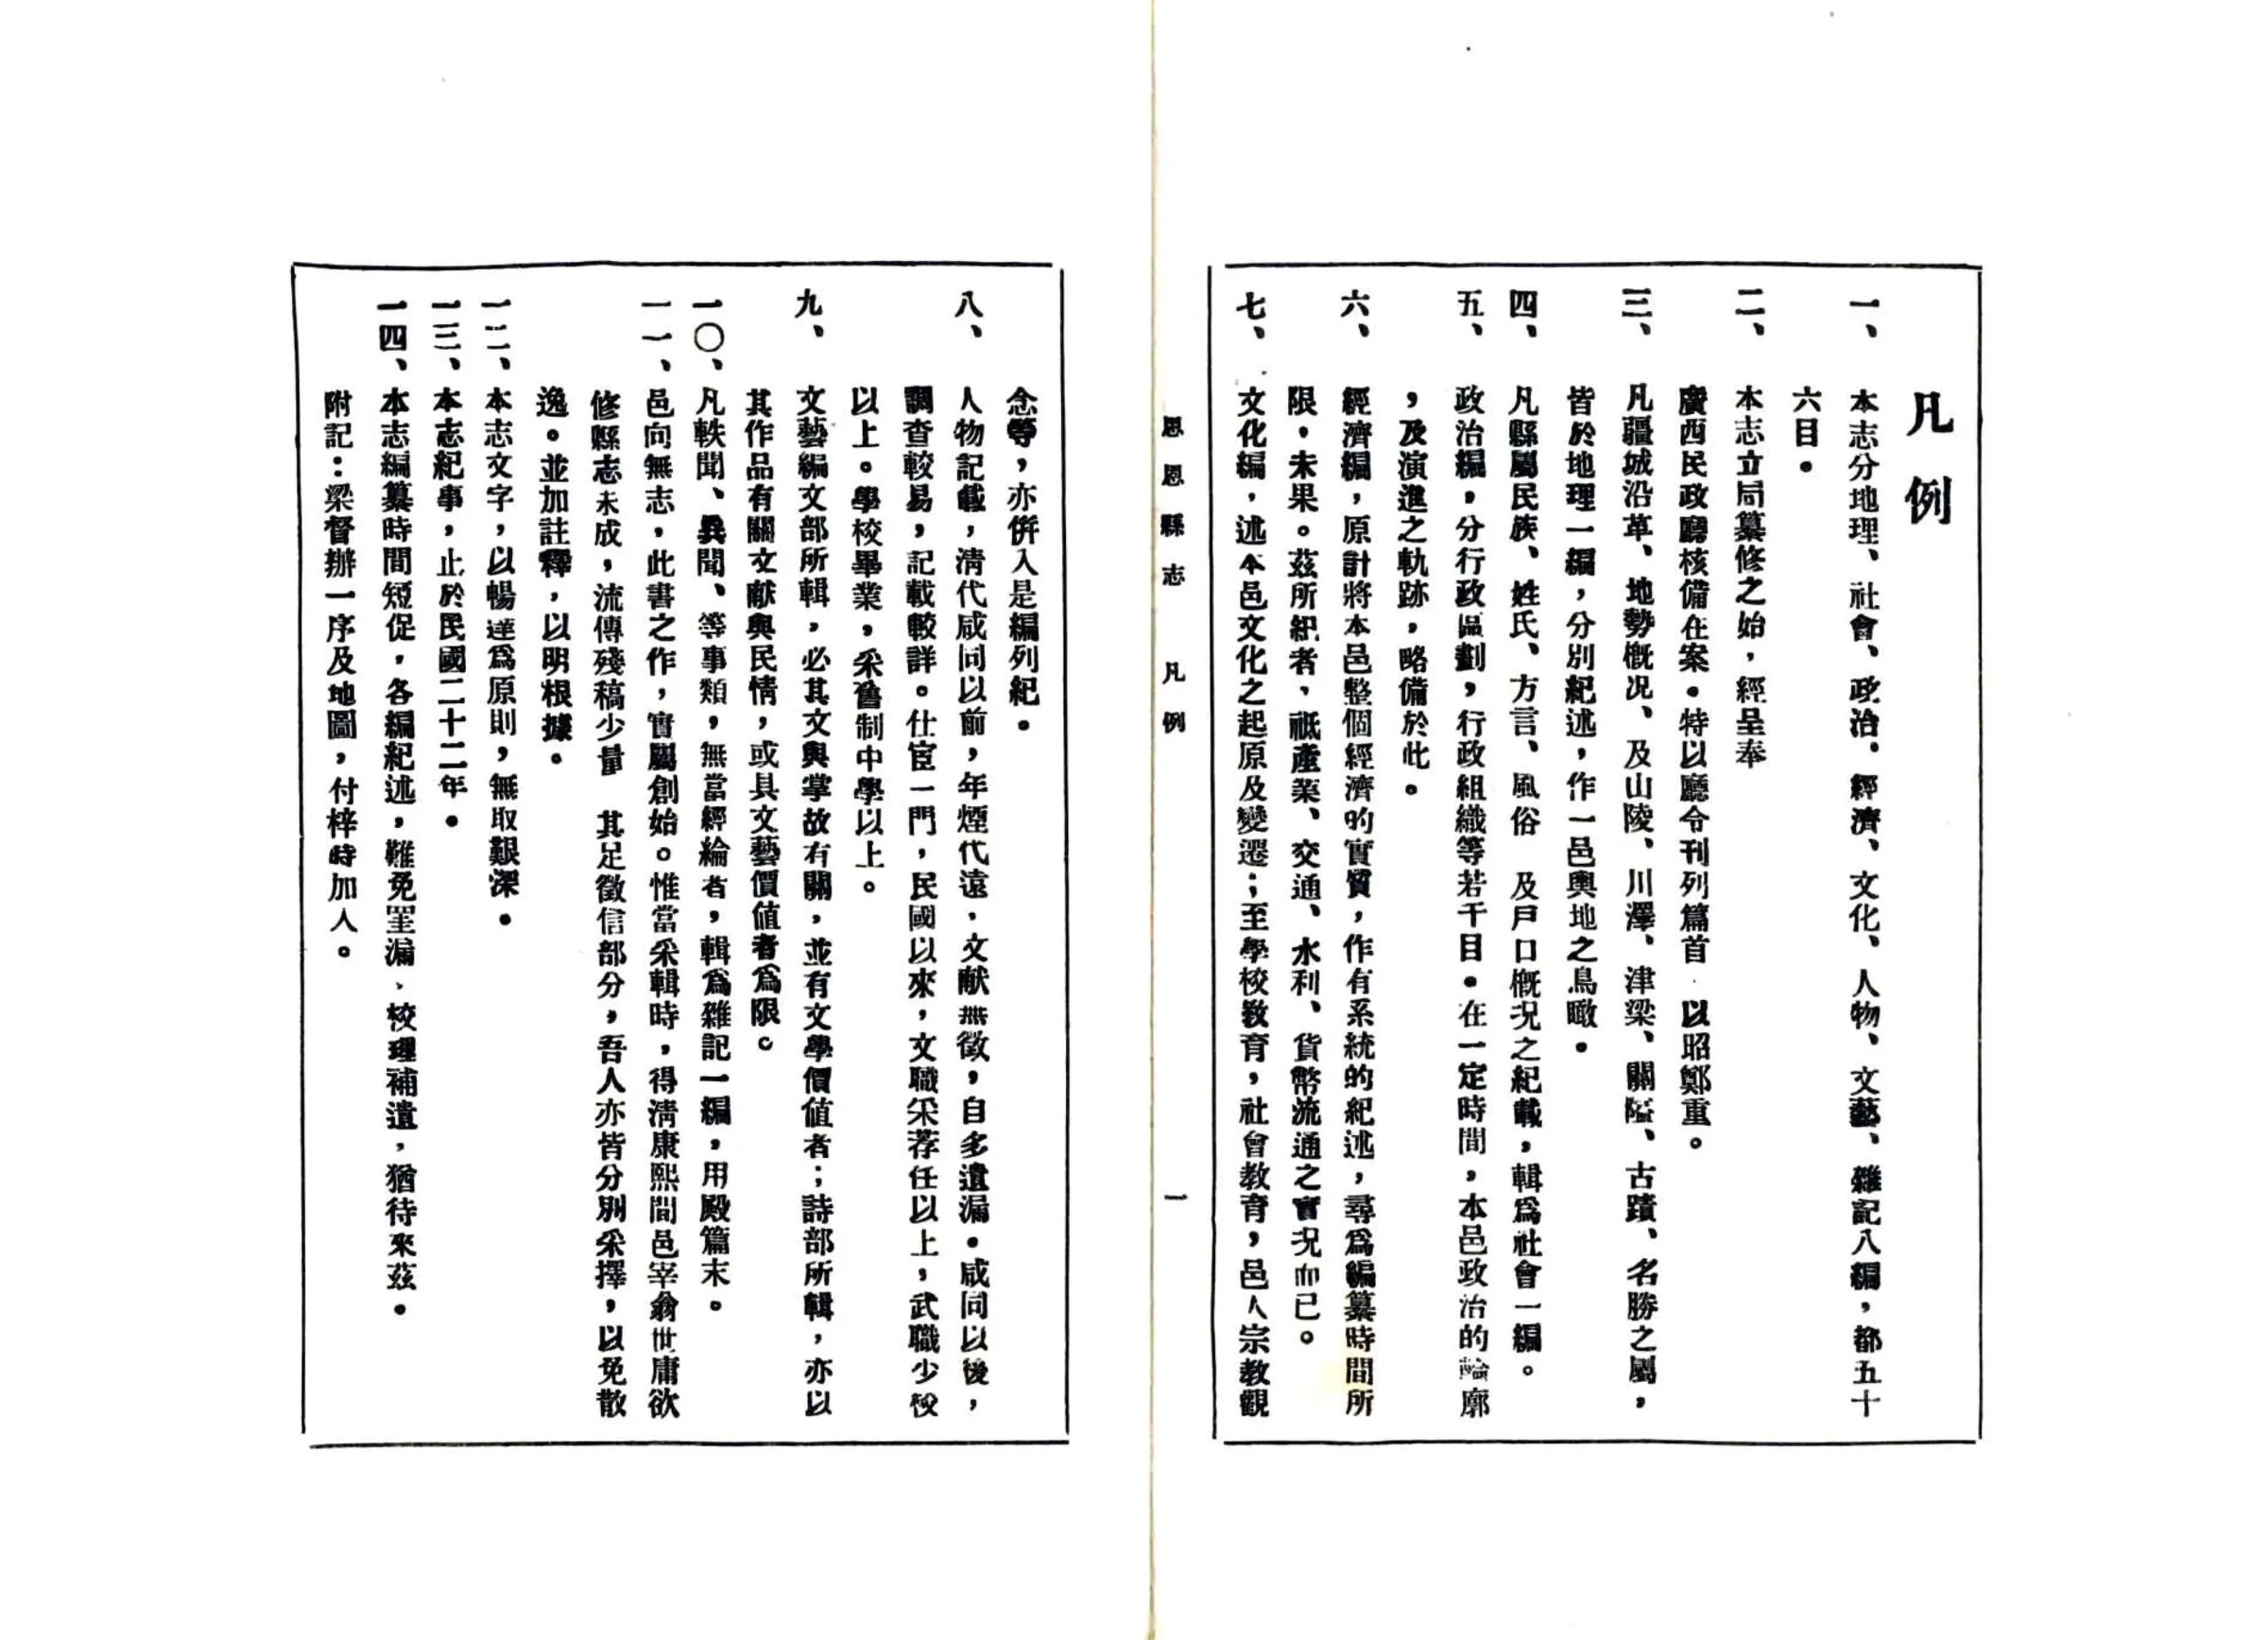 凡例
一、本志分地理、社會、政治、經濟、文化、人物、文藝、雜記八編，都五十
六目。
二、本志立局纂修之始，經呈奉
廣西民政廳核備在案。特以廳令刊列篇首 以昭鄭重。
三、凡疆域沿革、地勢概况、及山陵、川澤、津梁、關隘、古蹟、名勝之屬，
皆於地理一編，分別紀述，作一邑輿地之鳥瞰。
四、凡縣屬民族、姓氏、方言、風俗 及戶口概况之紀載，輯爲社會一編。
五、政治編，分行政區劃，行政組織等若干目。在一定時間，本邑政治的輪廓
，及演進之軌跡，略備於此。
六、經濟編，原計將本邑整個經濟的實質，作有系統的紀述，尋爲編纂時間所
限，未果。茲所紀者，祇產業、交通、水利、貨幣流通之實况而已。
七、文化編，述本邑文化之起原及變遷；至學校敎育，社會教育，邑人宗教觀
思恩縣志 凡例 一
念等，亦併入是編列紀。
八、人物記載，清代咸同以前，年煙代遠，文献無徵，自多遺漏。咸同以後，
調查較易，記載較詳。仕宦一門，民國以來，文職采荐任以上，武職少校
以上。學校畢業，采舊制中學以上。
九、文藝編文部所輯，必其文與掌故有關，並有文學價値者；詩部所輯，亦以
其作品有關文献與民情，或具文藝價値者爲限。
一〇、凡軼聞、異聞、等事類，無當經綸者，輯爲雜記一編，用殿篇末。
一一、邑向無志，此書之作，實屬創始。惟當采輯時，得淸康熙間邑宰翁世庸欲
修縣志未成，流傳殘稿少量 其足徵信部分，吾人亦皆分別采擇，以免散
逸。並加註釋，以明根據。
一二、本志文字，以暢達爲原則，無取艱深。
一三、本志紀事，止於民國二十二年。
一四、本志編纂時間短促，各編紀述，難免罣漏、校理補遺，猶待來茲。
附記：梁督辦一序及地圖，付梓時加入。